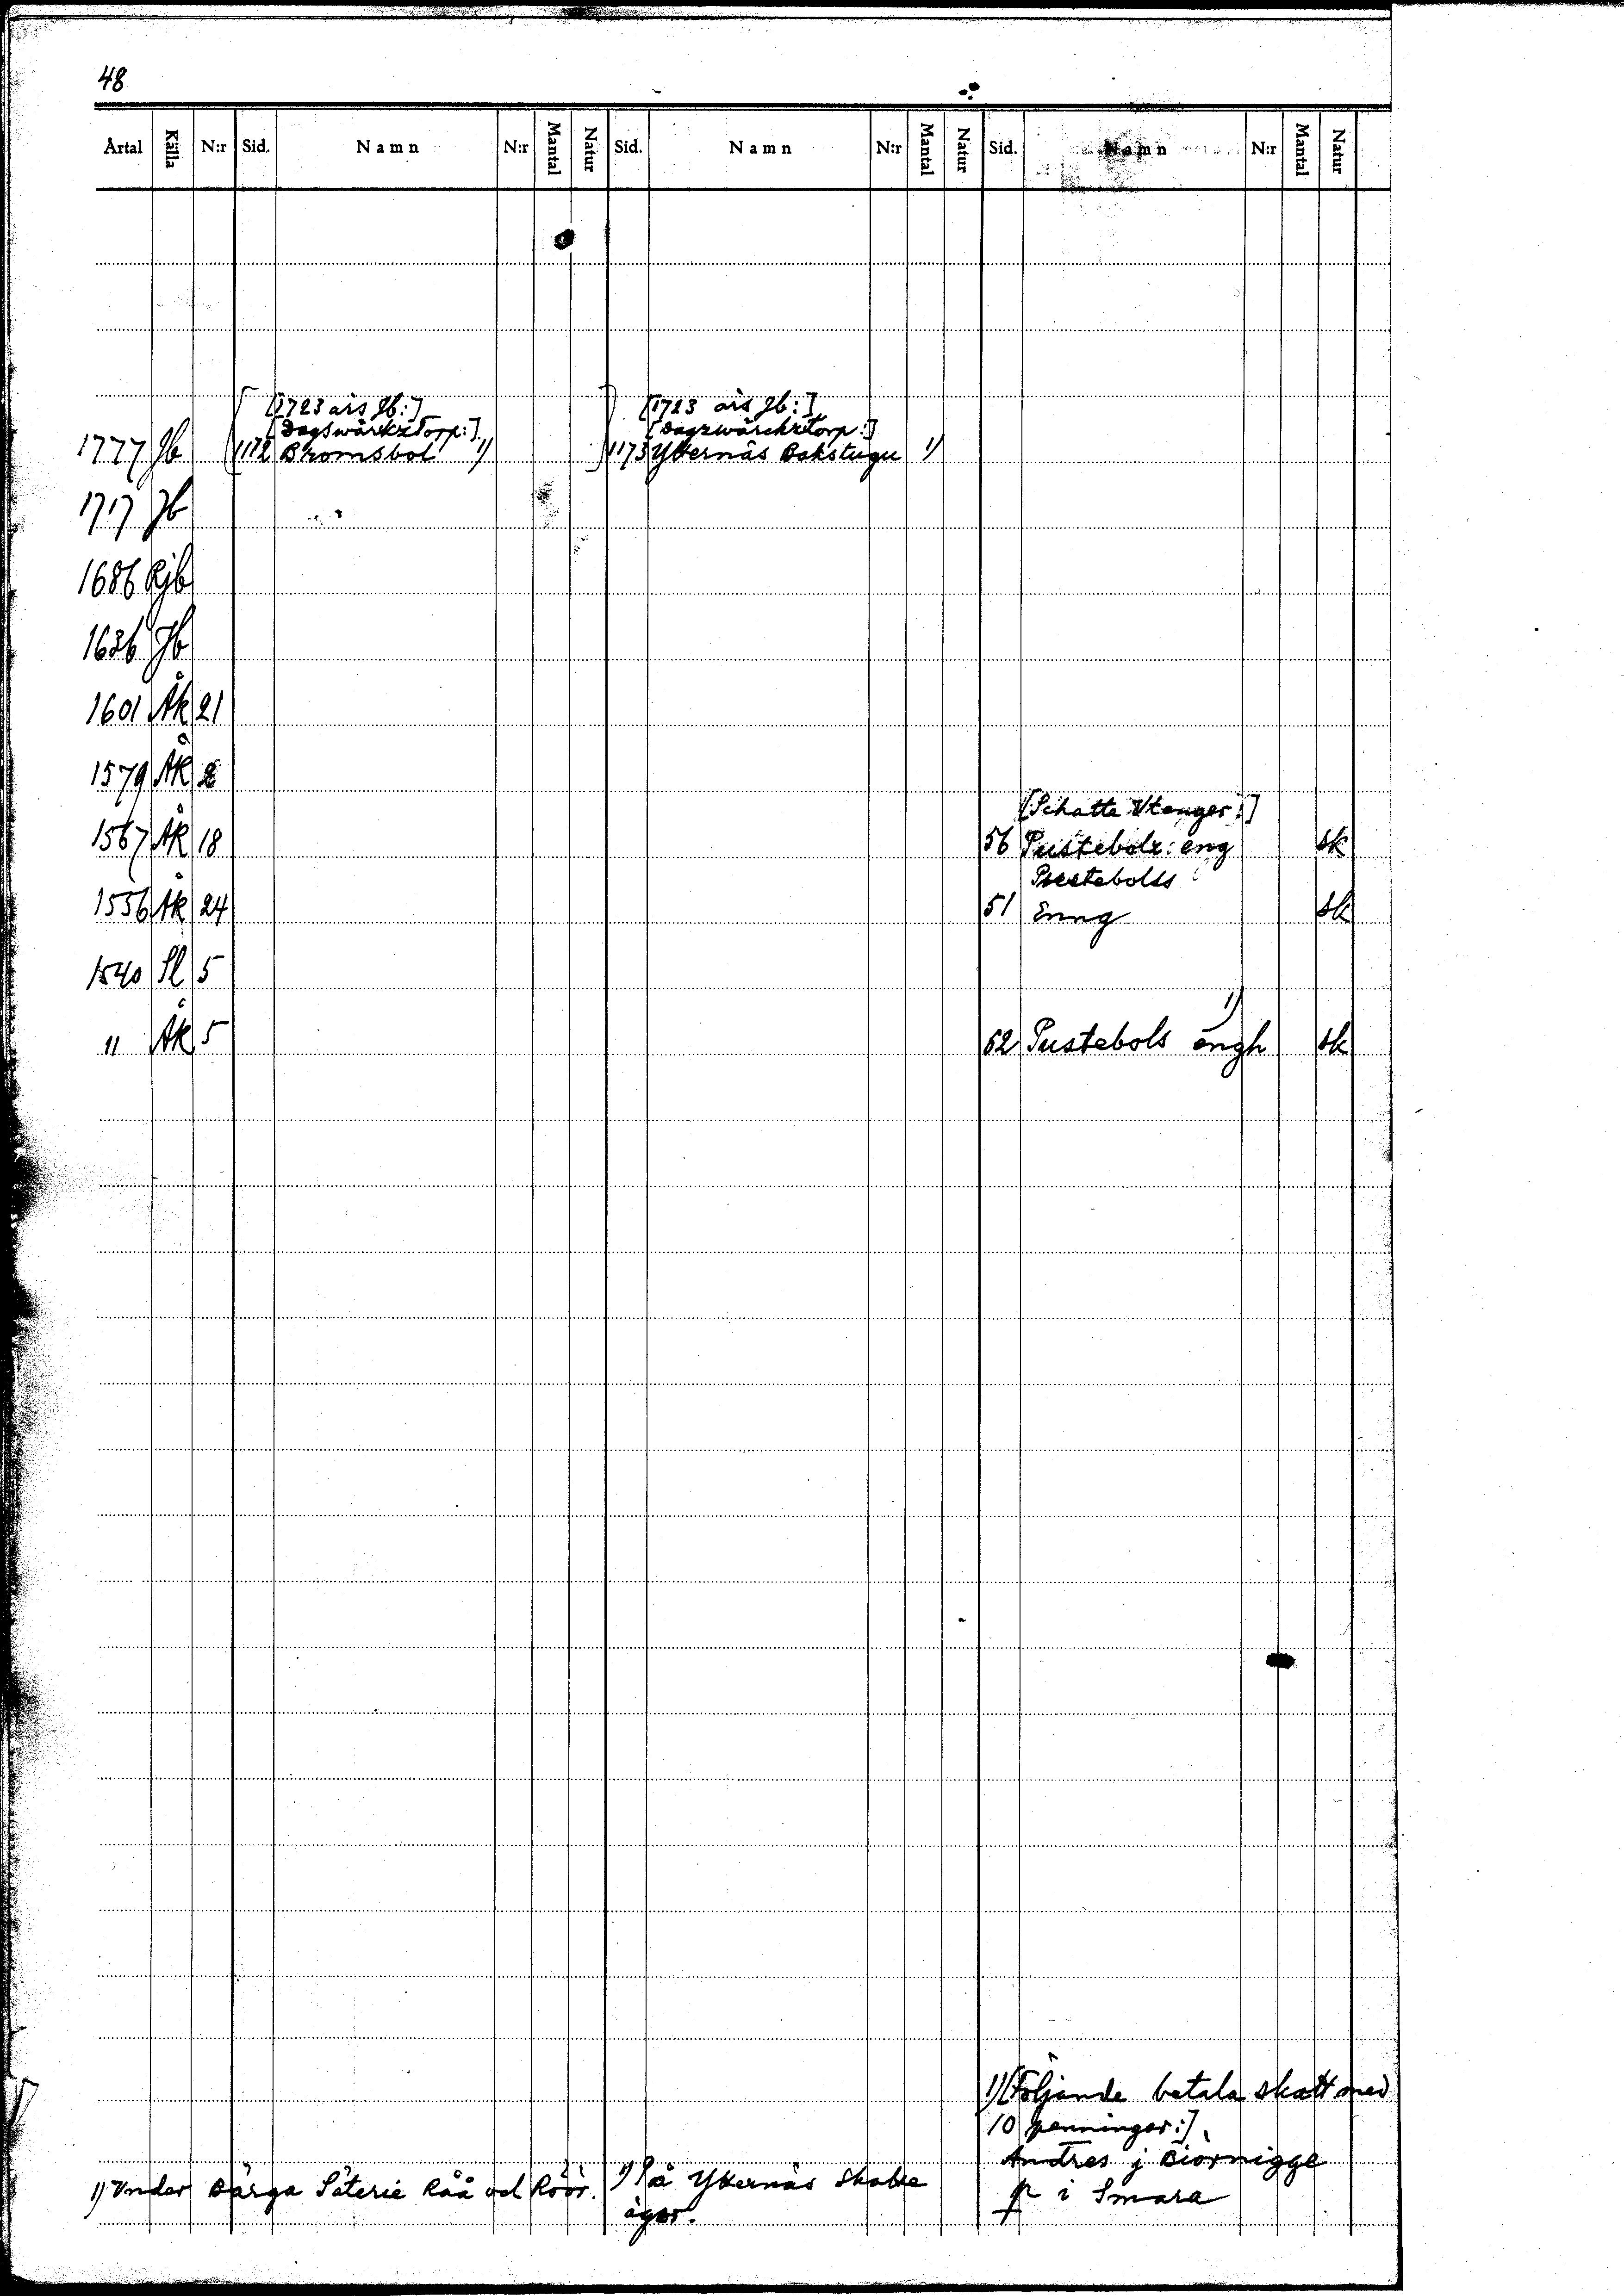 48
Årtal Källa N:r Sid. Namn N:r Mantal Natur Sid. Namn N:r Mantal Natur Sid. Namn N:r Mantal Natur
[1723 års Jb:] [1723 års Jb:]
[Dagswärkztorp:] [Dagzwärckztorp:]
1777 Jb 1172 Bromsbol 1) 1173 Ytternäs Bakstugu 1)
1717 Jb
1686 Rjb
1636 Jb
1601 Åk 21
1579 Åk 8
[Schatte Utenger:]
1567 Åk 18 56 Pustebolz eng sk
Pustebolss
1556 Åk 24 51 Enng sk
1540 Sl 5
" Åk 5 62 Pustebols engh 1) sk
1) [Följande betala skatt med
10 penningar:]
Andres j Biörnigge
p i Smara
1) Under Bärga Säterie Råå och Röör. 1) På Ytternäs Skatte
ägor.